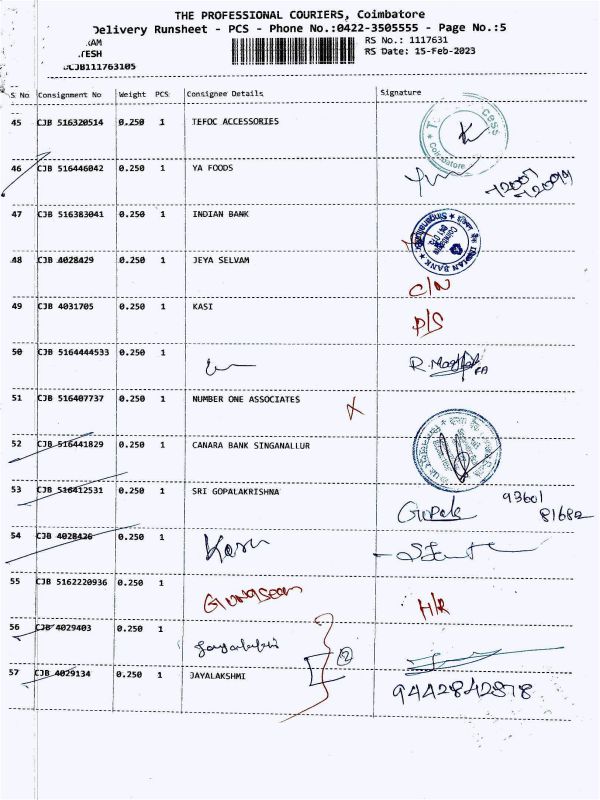 THE PROFESSIONAL COURIERS, Coimbatore
Delivery Runsheet - PCS - Phone No.:0422-3505555 - Page No.:5
RS No.: 1117631
RS Date: 15-Feb-2023
S No Consignment No Weight PCS Consignee Details Signature
45 CJB 516320514 0.250 1 TEFOC ACCESSORIES
46 CJB 516446042 0.250 1 YA FOODS
47 CJB 516383041 0.250 1 INDIAN BANK
INDIAN BANK
48 CJB 4028429 0.250 1 JEYA SELVAM
C/N
49 CJB 4031705 0.250 1 KASI
P/S
50 CJB 5164444533 0.250 1
51 CJB 516407737 0.250 1 NUMBER ONE ASSOCIATES X
52 CJB 516441829 0.250 1 CANARA BANK SINGANALLUR
53 CJB 516412531 0.250 1 SRI GOPALAKRISHNA
93601
81682
54 CJB 4028426 0.250 1
55 CJB 5162220936 0.250 1
H/R
56 CJB 4029403 0.250 1
2
57 CJB 4029134 0.250 1 JAYALAKSHMI
9442842878